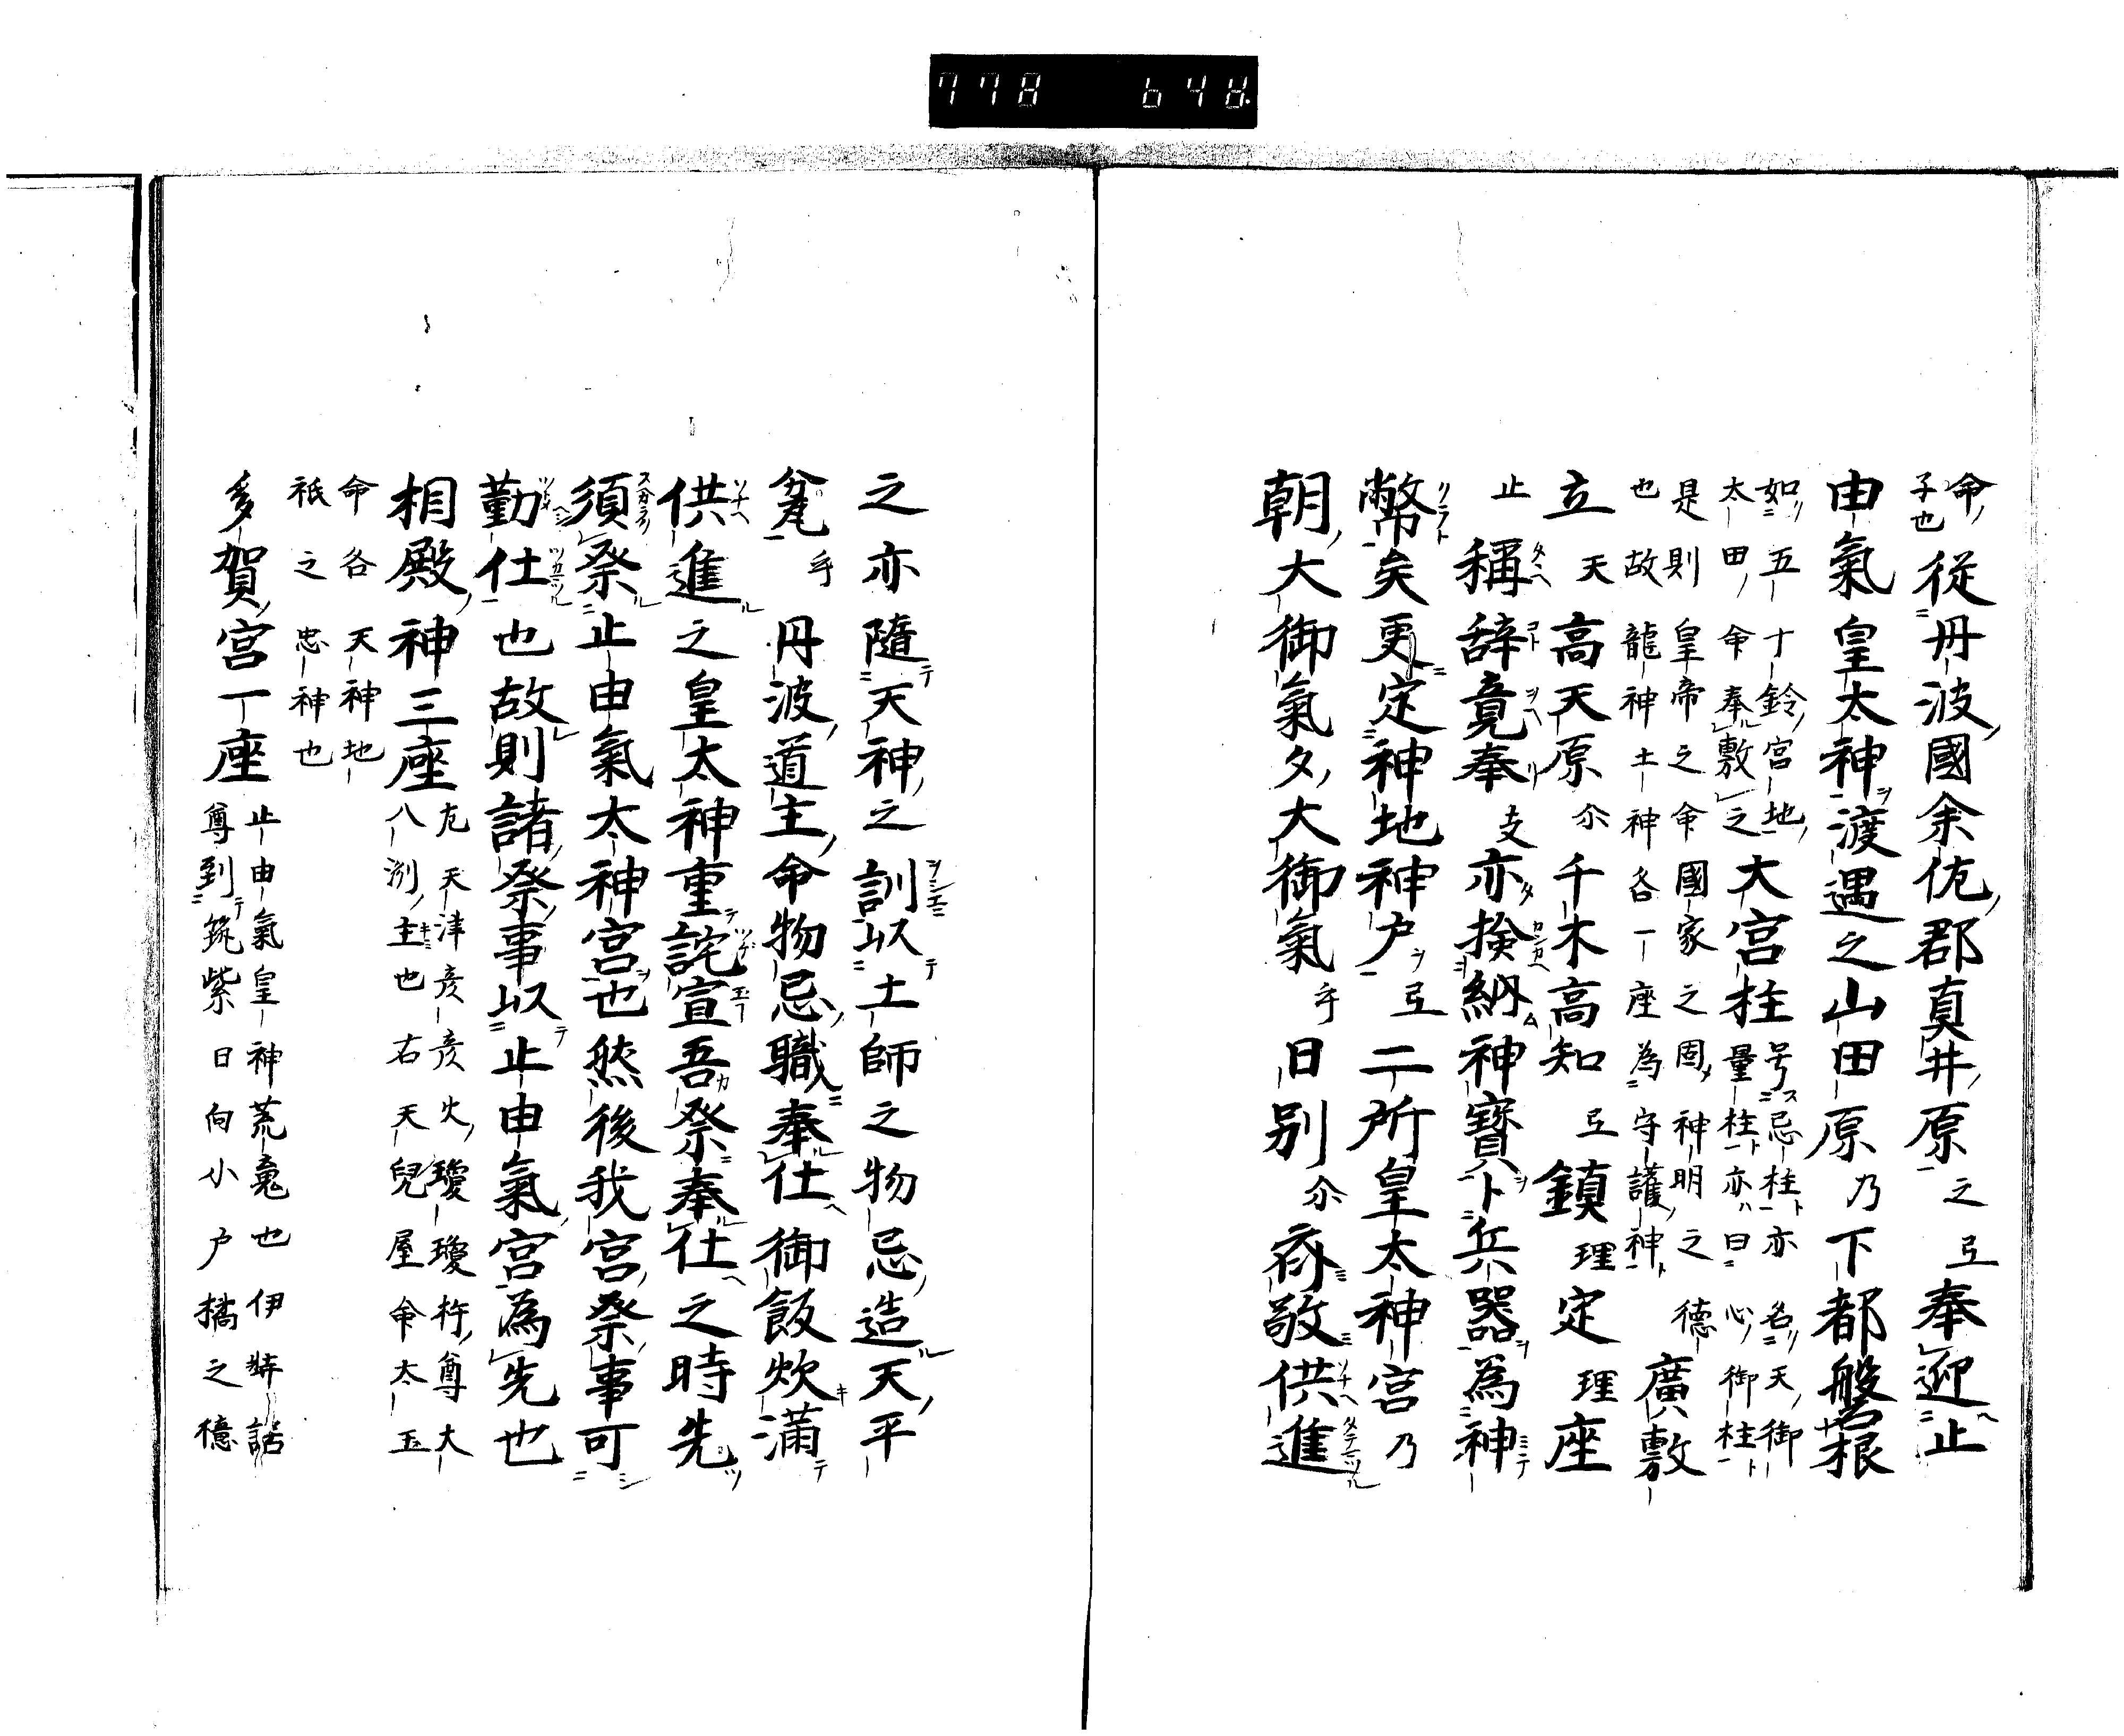 命子也従丹波國余佐郡真井原之弖奉迎止
由氣皇太神渡遇之山田原乃下都磐根
大宮柱廣敷
如五十鈴宮地太田命奉敷之
号忌柱亦名天御量柱亦曰心御柱
是則皇帝之命國家之固神明之徳
也故龍神土神各一座為守護神
立天高天原尒千木高知弖鎮理定理座
止稱辞竟奉支亦撿納神寶卜兵器為神
幣矣更定神地神戸弖二所皇太神宮乃
朝大御氣夕大御氣乎日別尒齋敬供進
之亦隨天神之訓以土師之物忌造天平
瓮乎丹波道主命物忌職奉仕御飯炊満
供進之皇太神重詫宣吾祭奉仕之時先
須祭止由氣太神宮也然後我宮祭事可
勤仕也故則諸祭事以止由氣宮為先也
相殿神三座
左天津彦彦火瓊瓊杵尊大
八洲主也右天兒屋命太玉
命各天神地
祇之忠神也
多賀宮一座
止由氣皇神荒魂也伊弉諾
尊到筑紫日向小戸橘之檍
778 648